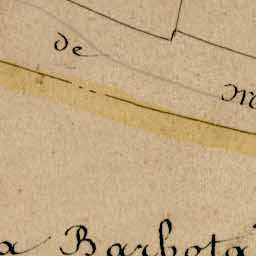 de
a Barbota